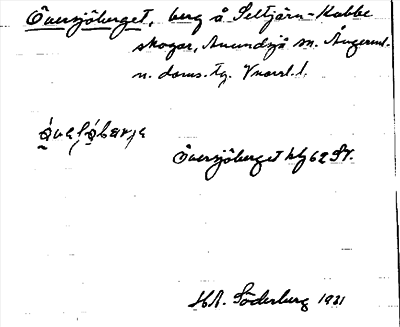 Översjöberget, berg å Seltjärn-Kubbe
skogar, Anundsjö sn. Ångerml.
n. doms. tg. Vnorrl. l.
Översjöberget htg 62 SV.
H.A. Söderberg 1931